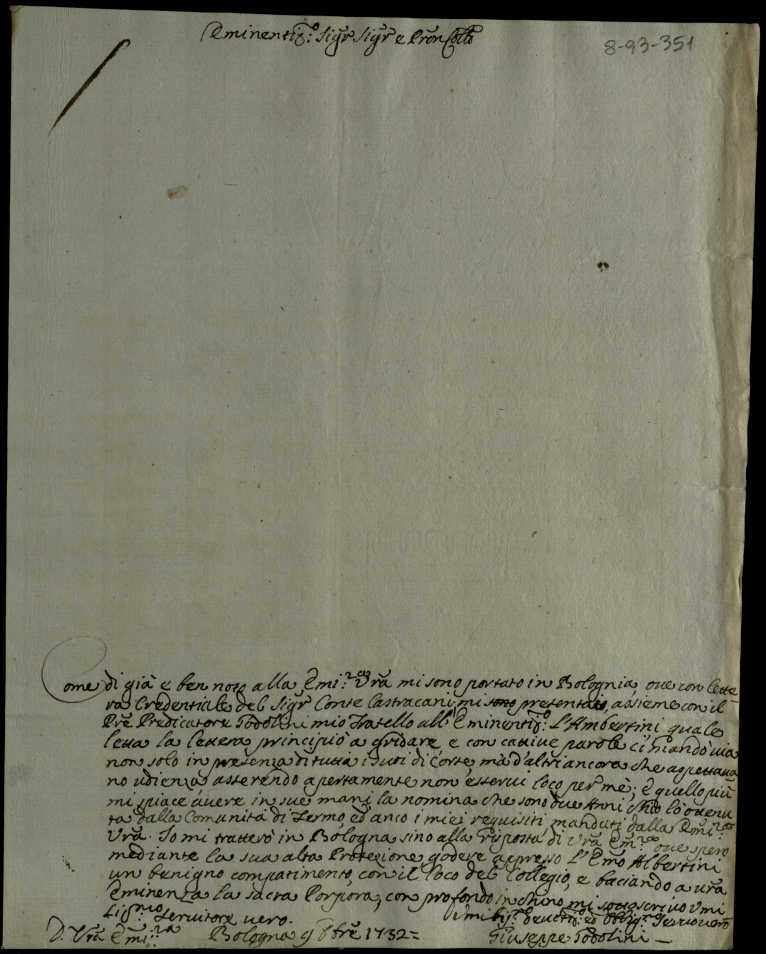 Eminentis:o Sigr Sigr e Pron Collo
8-93-351
Come di già è ben noto alla Emi:za Vra mi sono portato in Bolognia, ove con lette-
ra Credentiale del Sigr Conte Castracani, mi sono presentato, assieme con il
Pre Predicatore Todolini mio Fratello all'Eminentis:o L'Ambertini quale
letta la lettera principiò a gridare, e con cattive parole ci mandò via
non solo in presenza di tutta i duti di Corte, mà d'altri ancora che aspettava
no udienza asserendo apertamente non esservi loco per mè; e quello più
mi spiace avere in sue mani la nomina che sono due Anni che lò ottenu
ta dalla Comunità di Fermo, ed anco i miei requisiti mandati dalla Emi:za
Vrã. Io mi tratterò in Bologna sino alla risposta di Vrã Em:za ove spero
mediante la sua alta Protezione godere appresso L'Emo Albertini
un benigno compatimento con il loco del Collegio, e baciando a vrã
Eminenza la sacra Porpora, con profondo inchino mi sottoscrivo
Servitore vero. Umilis:o devotis:o ed obblig:o Servitore
D. Vrã Emi:za Bologna 9bre 1732=
Giuseppe Todolini